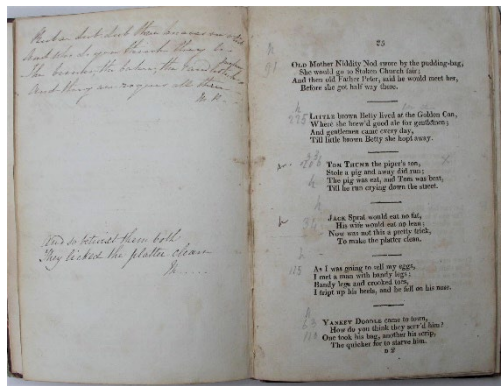 And who do you think they be
The butcher, the baker, the
And they are rogues all three
And so betwixt them both
They licked the platter clean
25
OLD Mother Niddity Nod swore by the pudding-bag,
She would go to Stoken Church fair;
And then old Father Peter, said he would meet her,
Before she got half way there.
LITTLE brown Betty lived at the Golden Can,
Where she brew'd good ale for gentlemen;
And gentlemen came every day,
Till little brown Betty she hopt away.
TOM THUMB the piper's son,
Stole a pig and away did run;
The pig was eat, and Tom was beat,
Till he run crying down the street.
JACK Sprat would eat no fat,
His wife would eat no lean;
Now was not this a pretty trick,
To make the platter clean.
As I was going to sell my eggs,
I met a man with bandy legs;
Bandy legs and crooked toes,
I tript up his heels, and he fell on his nose.
YANKEY DOODLE came to town,
How do you think they serv'd him?
One took his bag, another his scrip,
The quicker for to starve him.